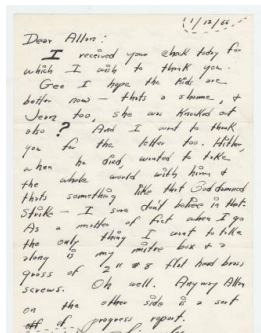 1/12/66
Dear Allon:
I received your chek today for
which I wish to thank you.
Gee I hope the Kids are
better now - thats a shame, &
Jenz too, she was Knocked out
also? And I want to thank
you for the letter too. Hitler,
when he died, wanted to take
the whole world with him &
thats something like that God damned
strike - I sure dont believe in that.
As a matter of fact when I go
the only thing I want to take
along is my mitre box & a
gross of 2" #8 flat head brass
screws. Oh well. Anyway Allon
on the other side is a sort
of progress report.